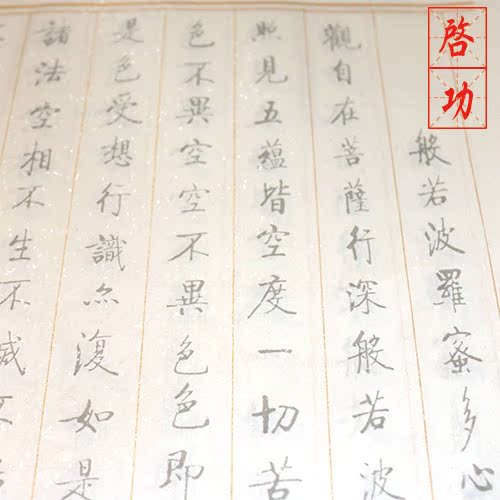 啓功
般若波羅蜜多心
觀自在菩薩行深般若波
照見五蘊皆空度一切苦
色不異空空不異色色即
是色受想行識亦復如是
諸法空相不生不滅不